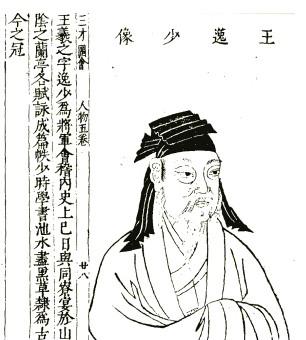 王逸少像
三才圖會 人物五卷 廿八
王羲之字逸少為將軍會稽内史上巳日與同寮宴於山
陰之蘭亭各賦詠成篇帙少時學書池水盡黑草隸為古
今之冠